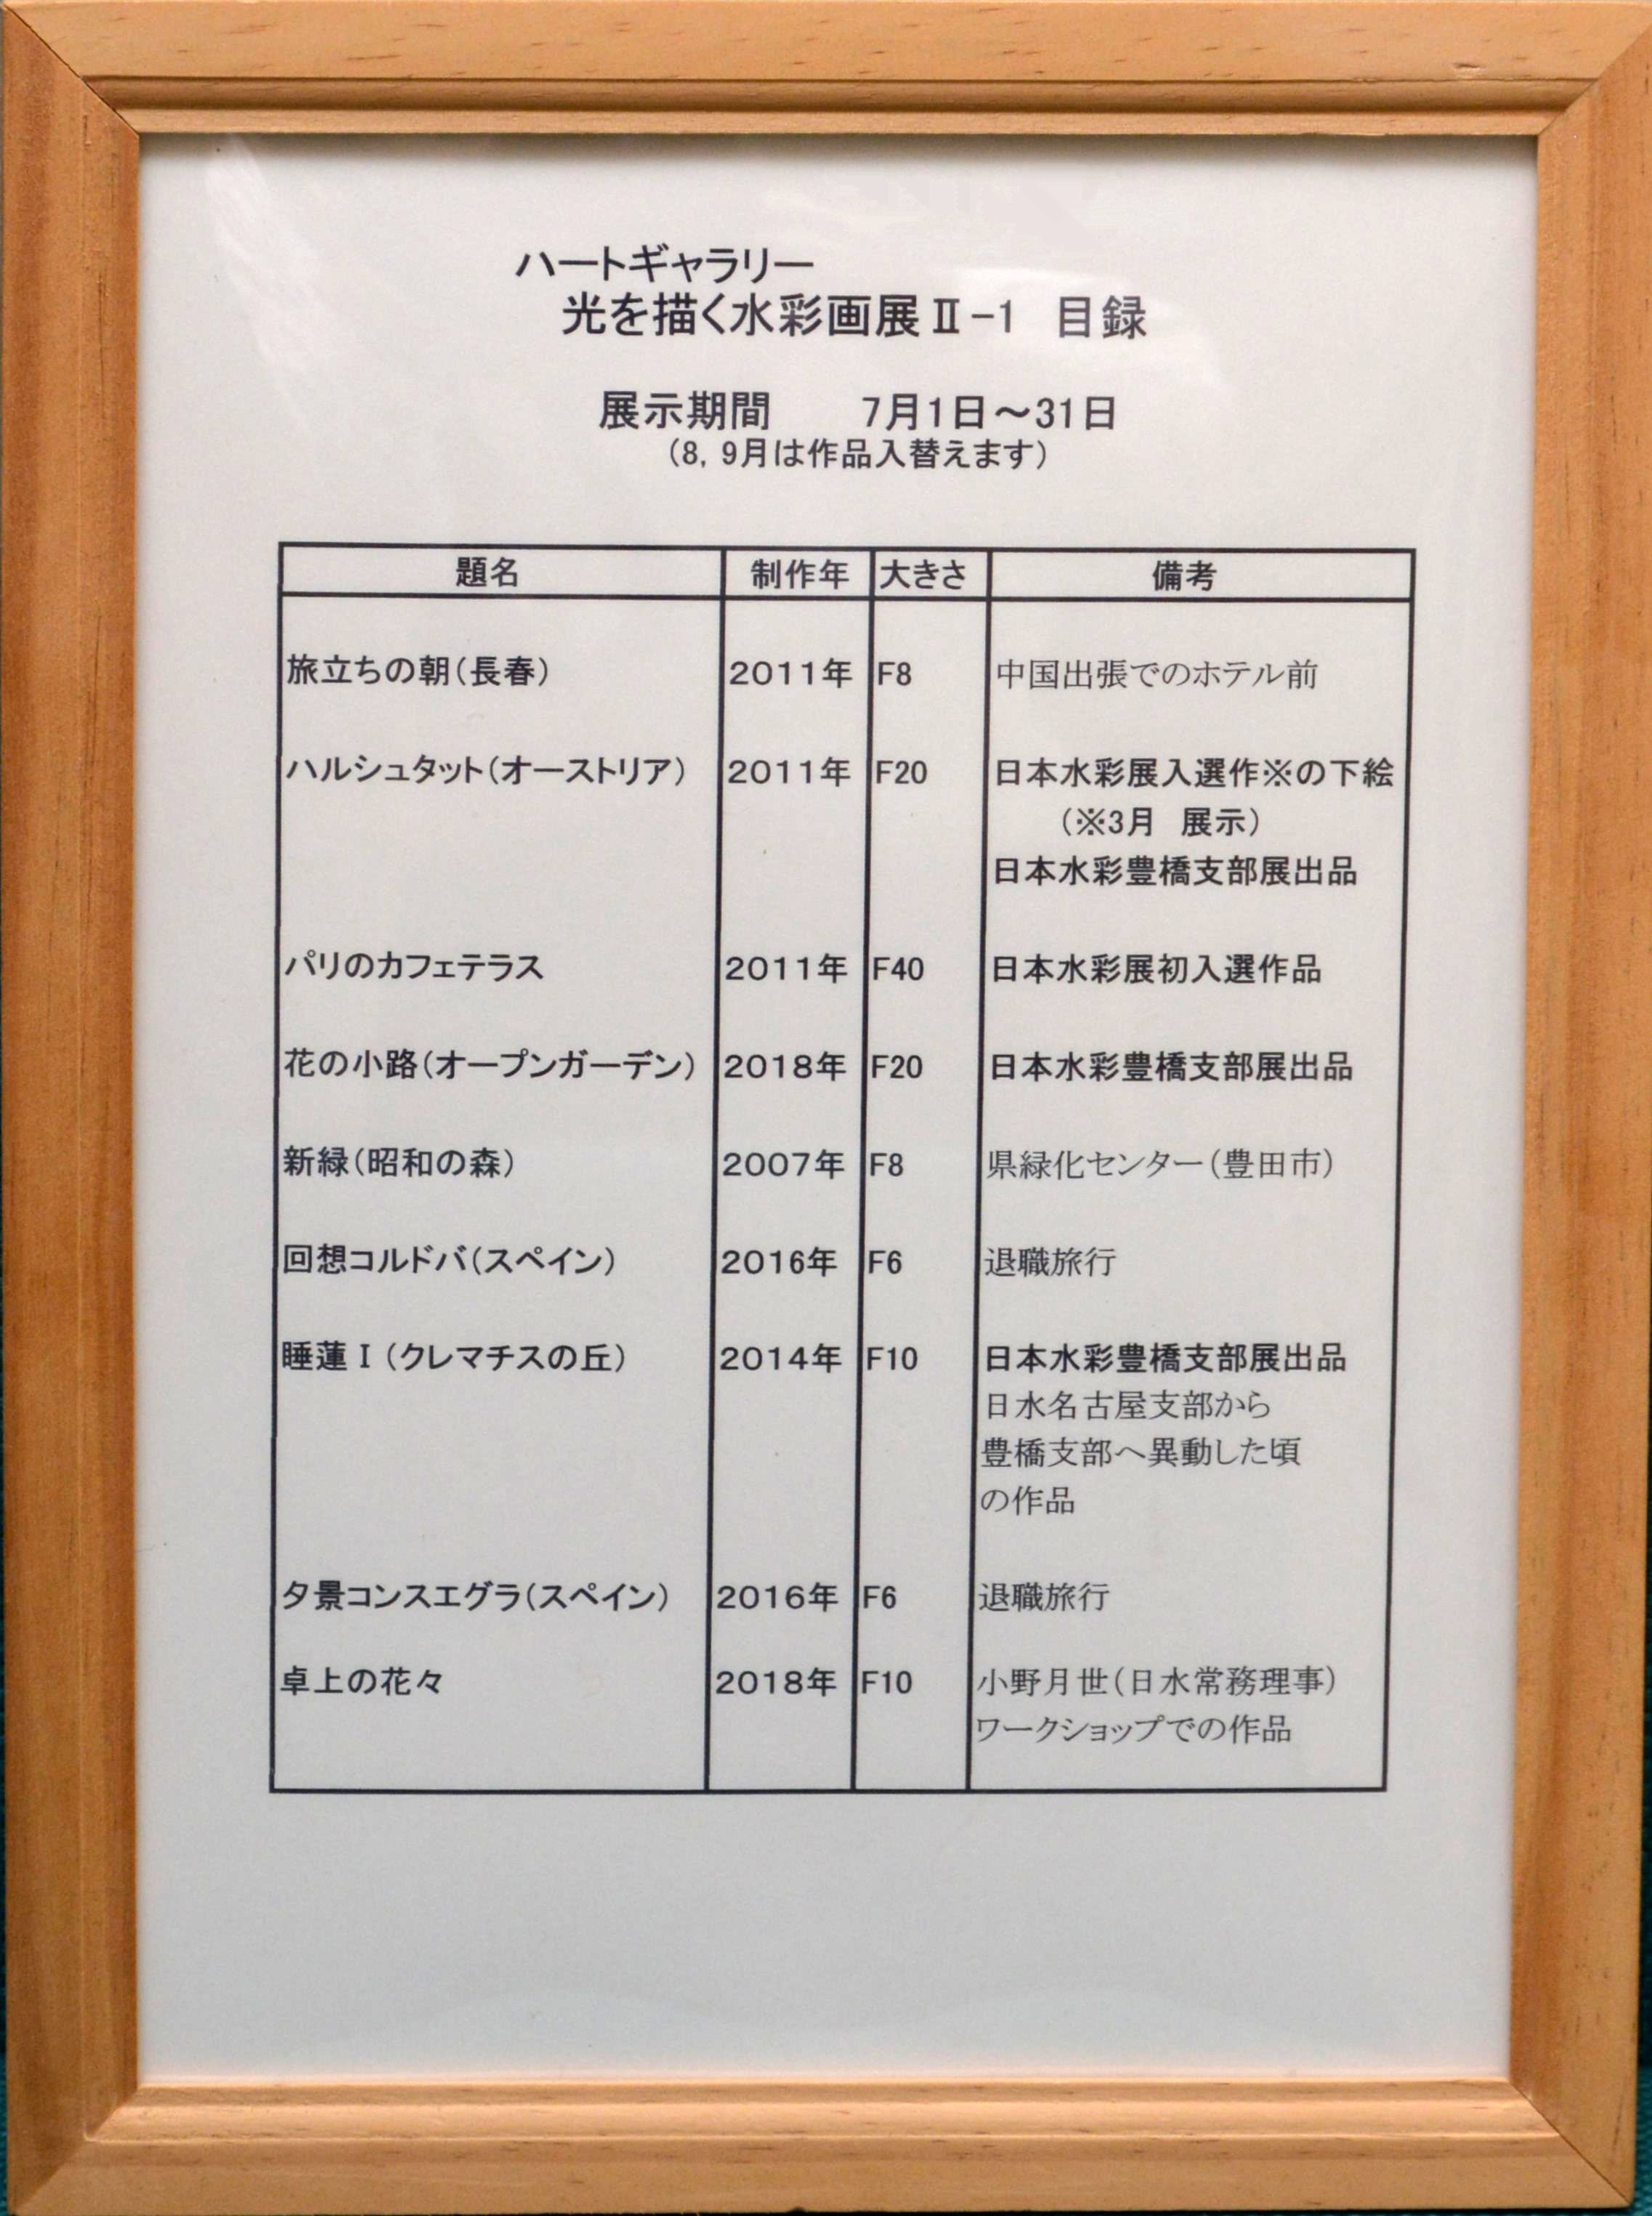 ハートギャラリー
光を描く水彩画展Ⅱ-1 目録
展示期間 7月1日～31日
(8, 9月は作品入替えます)
題名 制作年 大きさ 備考
旅立ちの朝(長春) 2011年 F8 中国出張でのホテル前
ハルシュタット(オーストリア) 2011年 F20 日本水彩展入選作※の下絵
(※3月 展示)
日本水彩豊橋支部展出品
パリのカフェテラス 2011年 F40 日本水彩展初入選作品
花の小路(オープンガーデン) 2018年 F20 日本水彩豊橋支部展出品
新緑(昭和の森) 2007年 F8 県緑化センター(豊田市)
回想コルドバ(スペイン) 2016年 F6 退職旅行
睡蓮Ⅰ(クレマチスの丘) 2014年 F10 日本水彩豊橋支部展出品
日水名古屋支部から
豊橋支部へ異動した頃
の作品
夕景コンスエグラ(スペイン) 2016年 F6 退職旅行
卓上の花々 2018年 F10 小野月世(日水常務理事)
ワークショップでの作品